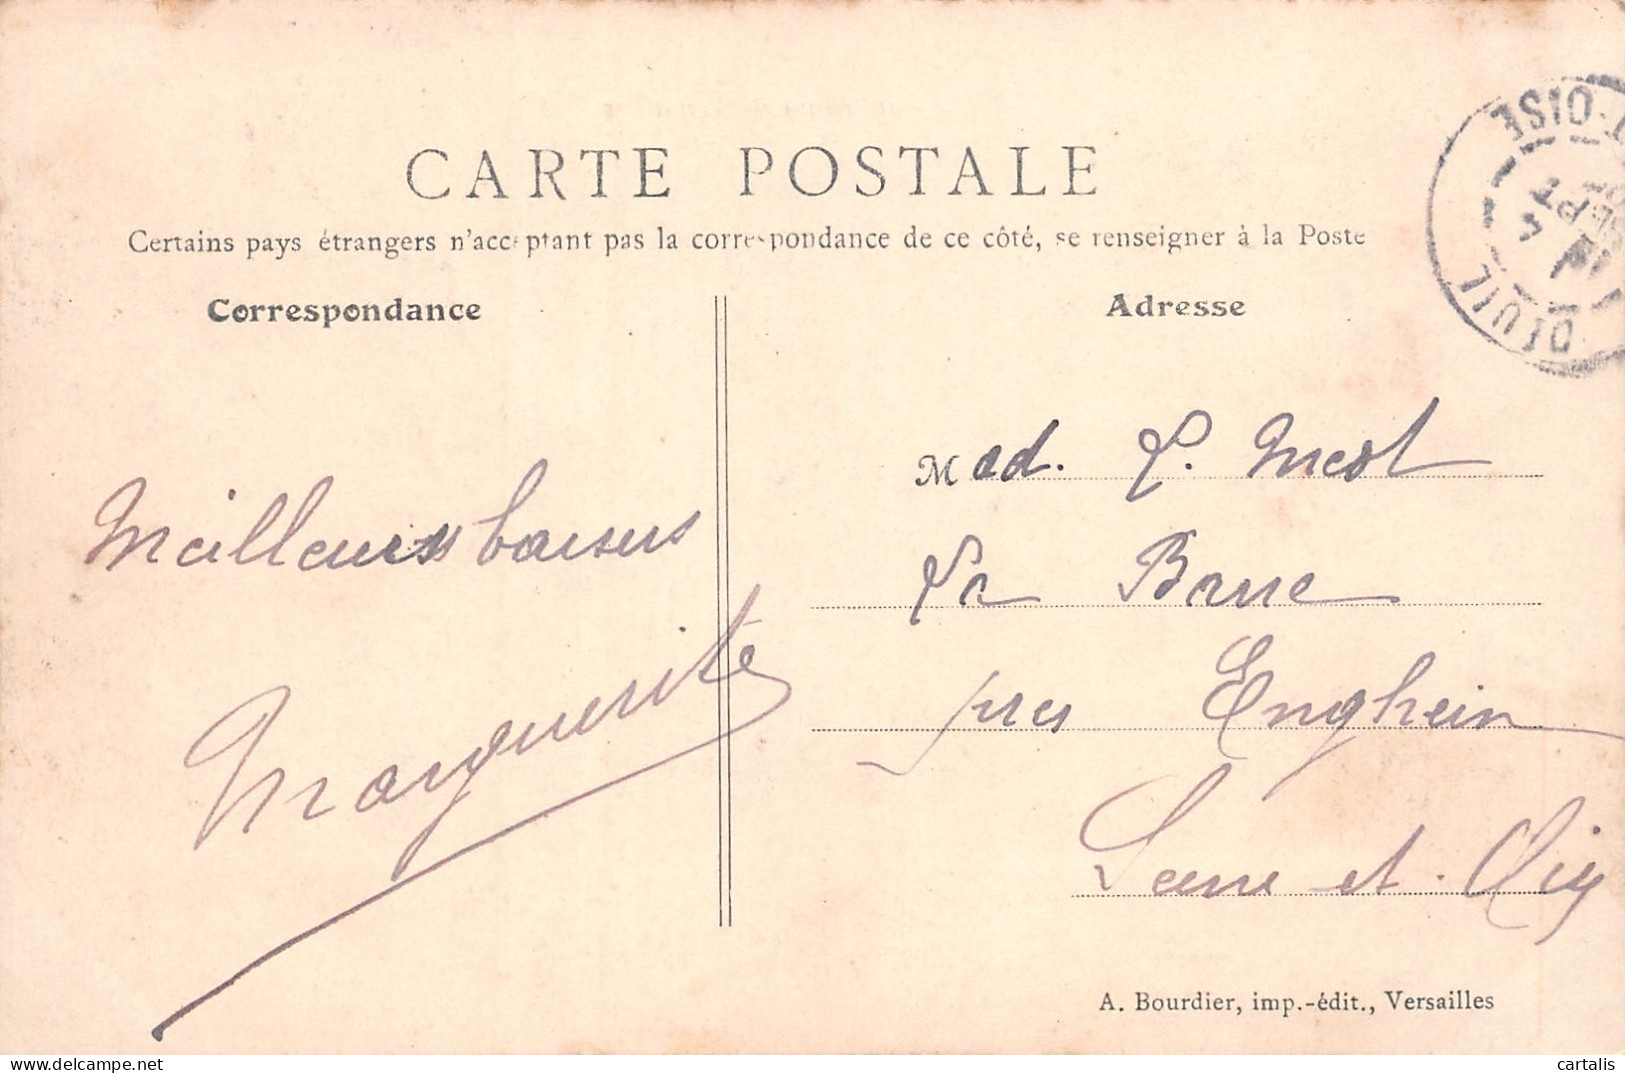 CARTE POSTALE
Certains pays étrangers n'acceptant pas la correspondance de ce côté, se renseigner à la Poste
Correspondance
Meilleurs baisers
Marguerite
Adresse
Mad.
La Barre
près Enghein
Seine et Oise
DEUIL
OISE
SEPT
A. Bourdier, imp.-édit., Versailles
cartalis